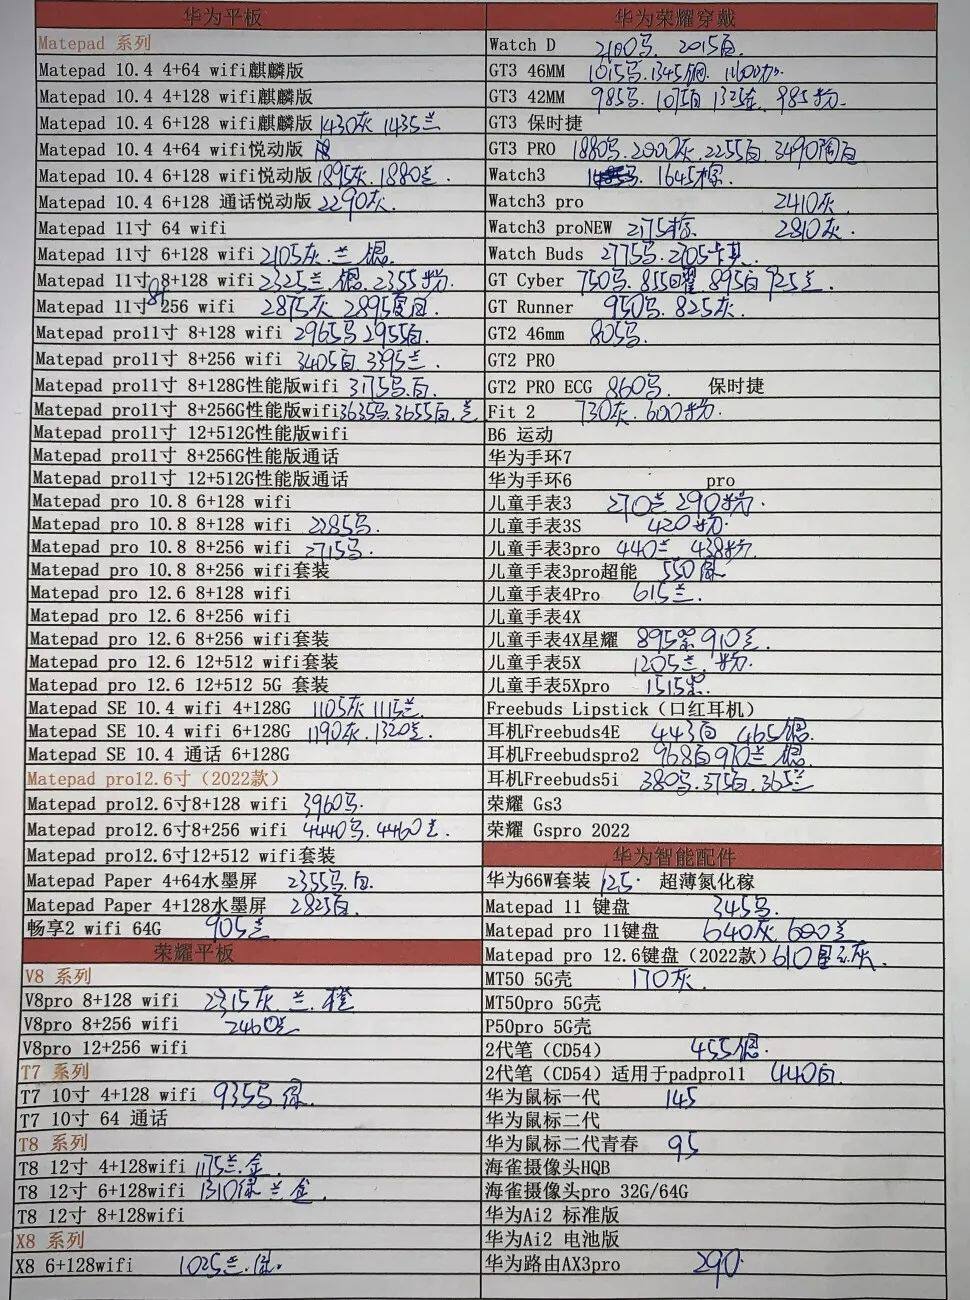 华为平板
Matepad 系列
Matepad 10.4 4+64 wifi麒麟版
Matepad 10.4 4+128 wifi麒麟版
Matepad 10.4 6+128 wifi麒麟版 1430灰 1435兰
Matepad 10.4 4+64 wifi悦动版
Matepad 10.4 6+128 wifi悦动版 1895灰. 1880兰.
Matepad 10.4 6+128 通话悦动版 2290灰.
Matepad 11寸 64 wifi
Matepad 11寸 6+128 wifi 2105灰. 兰. 银.
Matepad 11寸 8+128 wifi 2325兰. 银. 2355粉.
Matepad 11寸 8+256 wifi 2875灰 2895
Matepad pro11寸 8+128 wifi 2965马 2955白.
Matepad pro11寸 8+256 wifi 3405白. 3395兰.
Matepad pro11寸 8+128G性能版wifi 3175马.白.
Matepad pro11寸 8+256G性能版wifi 3635马. 3655白. 兰
Matepad pro11寸 12+512G性能版wifi
Matepad pro11寸 8+256G性能版通话
Matepad pro11寸 12+512G性能版通话
Matepad pro 10.8 6+128 wifi
Matepad pro 10.8 8+128 wifi 2285马.
Matepad pro 10.8 8+256 wifi 2715马.
Matepad pro 10.8 8+256 wifi套装
Matepad pro 12.6 8+128 wifi
Matepad pro 12.6 8+256 wifi
Matepad pro 12.6 8+256 wifi套装
Matepad pro 12.6 12+512 wifi套装
Matepad pro 12.6 12+512 5G 套装
Matepad SE 10.4 wifi 4+128G 1105灰 1115兰.
Matepad SE 10.4 wifi 6+128G 1190灰. 1320兰.
Matepad SE 10.4 通话 6+128G
Matepad pro12.6寸（2022款）
Matepad pro12.6寸8+128 wifi 3960马.
Matepad pro12.6寸8+256 wifi 4440马. 4460兰.
Matepad pro12.6寸12+512 wifi套装
Matepad Paper 4+64水墨屏 2355马. 白.
Matepad Paper 4+128水墨屏 2825白.
畅享2 wifi 64G 905兰
荣耀平板
V8 系列
V8pro 8+128 wifi 2315灰. 兰. 橙
V8pro 8+256 wifi 2460兰
V8pro 12+256 wifi
T7 系列
T7 10寸 4+128 wifi 935马 绿.
T7 10寸 64 通话
T8 系列
T8 12寸 4+128wifi 1175兰.金.
T8 12寸 6+128wifi 1310绿 兰 金.
T8 12寸 8+128wifi
X8 系列
X8 6+128wifi 1025兰.
华为荣耀穿戴
Watch D 2180马. 2015白.
GT3 46MM 1015马. 1345钢.
GT3 42MM 985马. 1075白 1325金. 985粉.
GT3 保时捷
GT3 PRO 1880马. 2000灰. 2255白. 3490陶白
Watch3 1645棕.
Watch3 pro 2410灰.
Watch3 proNEW 2175棕. 2810灰.
Watch Buds 2775马. 2705卡其
GT Cyber 750马. 855曜. 895白 925兰.
GT Runner 950马. 825灰.
GT2 46mm 805马.
GT2 PRO
GT2 PRO ECG 860马. 保时捷
Fit 2 730灰. 600粉.
B6 运动
华为手环7
华为手环6 pro
儿童手表3 270兰 290粉.
儿童手表3S 420粉.
儿童手表3pro 440兰 438粉.
儿童手表3pro超能 550
儿童手表4Pro 615兰.
儿童手表4X
儿童手表4X星耀 895紫 910兰.
儿童手表5X 1205兰. 粉.
儿童手表5Xpro 1515紫.
Freebuds Lipstick（口红耳机）
耳机Freebuds4E 443白 465银.
耳机Freebudspro2 968白 910兰 银.
耳机Freebuds5i 380马. 375白. 365兰
荣耀 Gs3
荣耀 Gspro 2022
华为智能配件
华为66W套装 125. 超薄氮化稼
Matepad 11 键盘 345马.
Matepad pro 11键盘 640灰. 600兰
Matepad pro 12.6键盘（2022款）610星云灰.
MT50 5G壳 170灰.
MT50pro 5G壳
P50pro 5G壳
2代笔（CD54） 455银.
2代笔（CD54）适用于padpro11 440白
华为鼠标一代 145
华为鼠标二代
华为鼠标二代青春 95
海雀摄像头HQB
海雀摄像头pro 32G/64G
华为Ai2 标准版
华为Ai2 电池版
华为路由AX3pro 290.